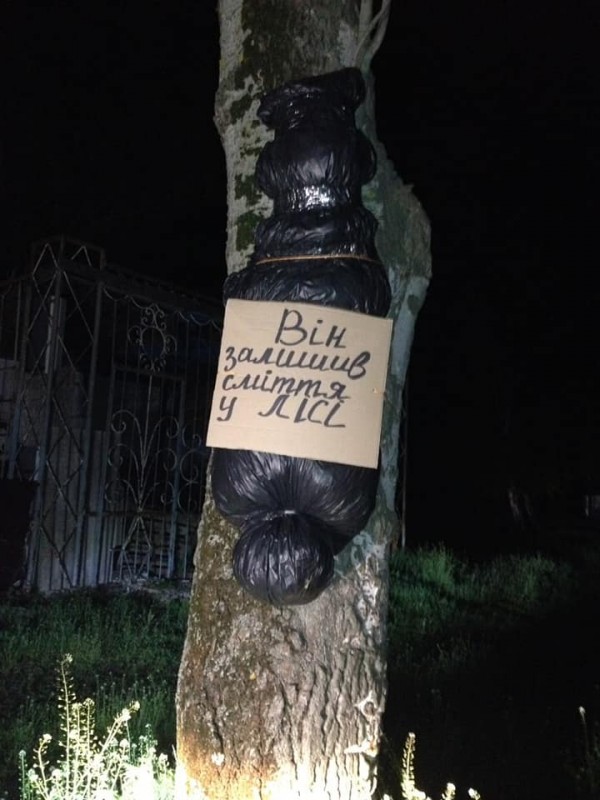 Він
залишив
сміття
у ЛІСІ